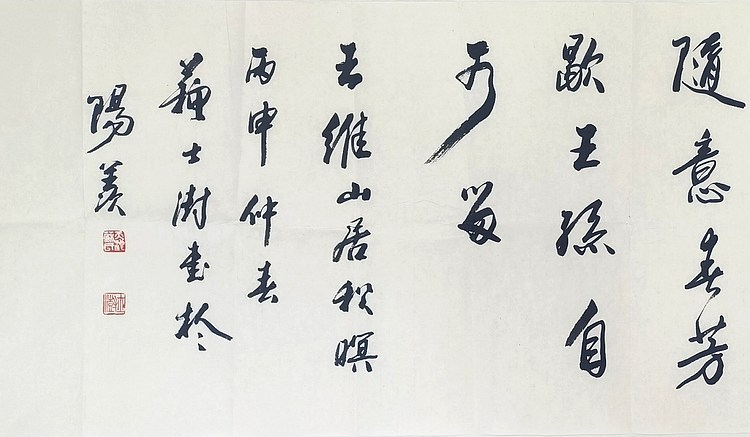 隨意春芳
歇王孫自
可留
王維山居秋暝
丙申仲春
蘇士澍書於
陽羨